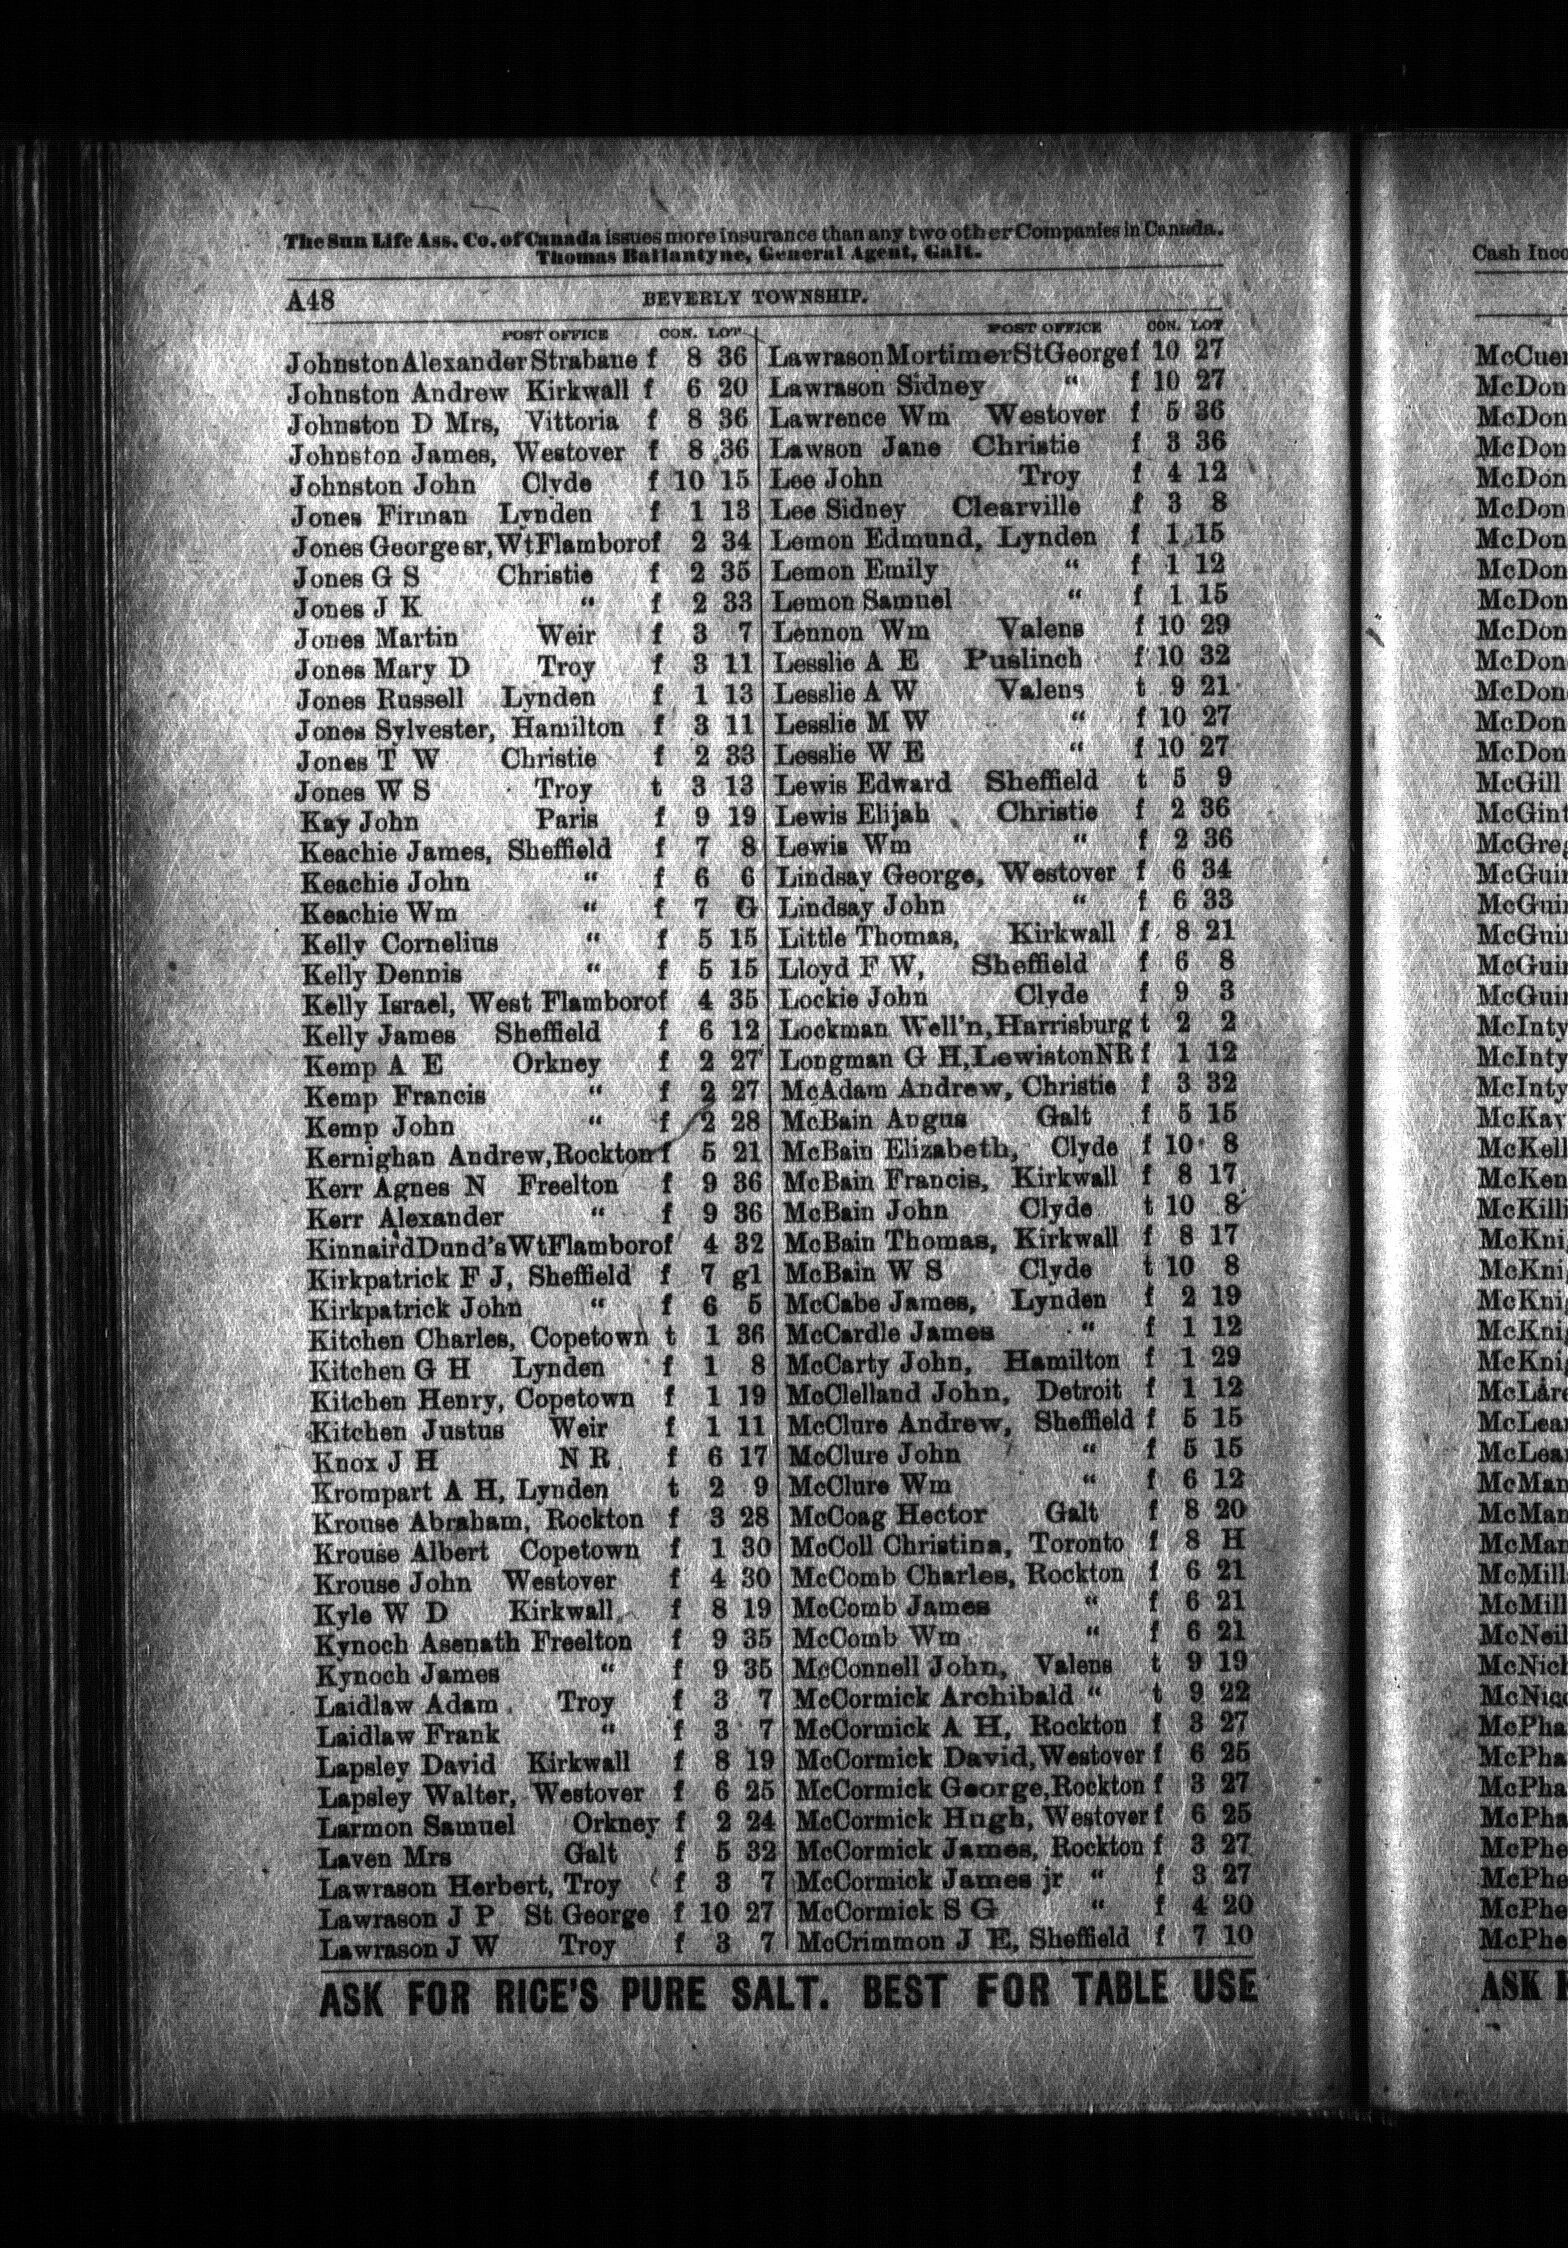 The Sun Life Ass. Co. of Canada issues more insurance than any two other Companies in Canada.
Thomas Ballantyne, General Agent, Galt.
A48 BEVERLY TOWNSHIP.
POST OFFICE CON. LOT
Johnston Alexander Strabane f 8 36
Johnston Andrew Kirkwall f 6 20
Johnston D Mrs, Vittoria f 8 36
Johnston James, Westover f 8 36
Johnston John Clyde f 10 15
Jones Firman Lynden f 1 13
Jones George sr, Wt Flamboro f 2 34
Jones G S Christie f 2 35
Jones J K " f 2 33
Jones Martin Weir f 3 7
Jones Mary D Troy f 3 11
Jones Russell Lynden f 1 13
Jones Sylvester, Hamilton f 3 11
Jones T W Christie f 2 33
Jones W S Troy t 3 13
Kay John Paris f 9 19
Keachie James, Sheffield f 7 8
Keachie John " f 6 6
Keachie Wm " f 7 G
Kelly Cornelius " f 5 15
Kelly Dennis " f 5 15
Kelly Israel, West Flamboro f 4 35
Kelly James Sheffield f 6 12
Kemp A E Orkney f 2 27
Kemp Francis " f 2 27
Kemp John " f 2 28
Kernighan Andrew, Rockton f 5 21
Kerr Agnes N Freelton f 9 36
Kerr Alexander " f 9 36
Kinnaird Dund's Wt Flamboro f 4 32
Kirkpatrick F J, Sheffield f 7 g1
Kirkpatrick John " f 6 5
Kitchen Charles, Copetown t 1 36
Kitchen G H Lynden f 1 8
Kitchen Henry, Copetown f 1 19
Kitchen Justus Weir f 1 11
Knox J H N R f 6 17
Krompart A H, Lynden t 2 9
Krouse Abraham, Rockton f 3 28
Krouse Albert Copetown f 1 30
Krouse John Westover f 4 30
Kyle W D Kirkwall f 8 19
Kynoch Asenath Freelton f 9 35
Kynoch James " f 9 35
Laidlaw Adam Troy f 3 7
Laidlaw Frank " f 3 7
Lapsley David Kirkwall f 8 19
Lapsley Walter, Westover f 6 25
Larmon Samuel Orkney f 2 24
Laven Mrs Galt f 5 32
Lawrason Herbert, Troy f 3 7
Lawrason J P St George f 10 27
Lawrason J W Troy f 3 7
POST OFFICE CON. LOT
Lawrason Mortimer St George f 10 27
Lawrason Sidney " f 10 27
Lawrence Wm Westover f 5 36
Lawson Jane Christie f 3 36
Lee John Troy f 4 12
Lee Sidney Clearville f 3 8
Lemon Edmund, Lynden f 1 15
Lemon Emily " f 1 12
Lemon Samuel " f 1 15
Lennon Wm Valens f 10 29
Lesslie A E Puslinch f 10 32
Lesslie A W Valens t 9 21
Lesslie M W " f 10 27
Lesslie W E " f 10 27
Lewis Edward Sheffield t 5 9
Lewis Elijah Christie f 2 36
Lewis Wm " f 2 36
Lindsay George, Westover f 6 34
Lindsay John " f 6 33
Little Thomas, Kirkwall f 8 21
Lloyd F W, Sheffield f 6 8
Lockie John Clyde f 9 3
Lockman Well'n, Harrisburg t 2 2
Longman G H, Lewiston NR f 1 12
McAdam Andrew, Christie f 3 32
McBain Angus Galt f 5 15
McBain Elizabeth, Clyde f 10 8
McBain Francis, Kirkwall f 8 17
McBain John Clyde t 10 8
McBain Thomas, Kirkwall f 8 17
McBain W S Clyde t 10 8
McCabe James, Lynden f 2 19
McCardle James " f 1 12
McCarty John, Hamilton f 1 29
McClelland John, Detroit f 1 12
McClure Andrew, Sheffield f 5 15
McClure John " f 5 15
McClure Wm " f 6 12
McCoag Hector Galt f 8 20
McColl Christina, Toronto f 8 H
McComb Charles, Rockton f 6 21
McComb James " f 6 21
McComb Wm " f 6 21
McConnell John, Valens t 9 19
McCormick Archibald " t 9 22
McCormick A H, Rockton f 3 27
McCormick David, Westover f 6 25
McCormick George, Rockton f 3 27
McCormick Hugh, Westover f 6 25
McCormick James, Rockton f 3 27
McCormick James jr " f 3 27
McCormick S G " f 4 20
McCrimmon J E, Sheffield f 7 10
ASK FOR RICE'S PURE SALT. BEST FOR TABLE USE
Cash
McGill
McKay
ASK